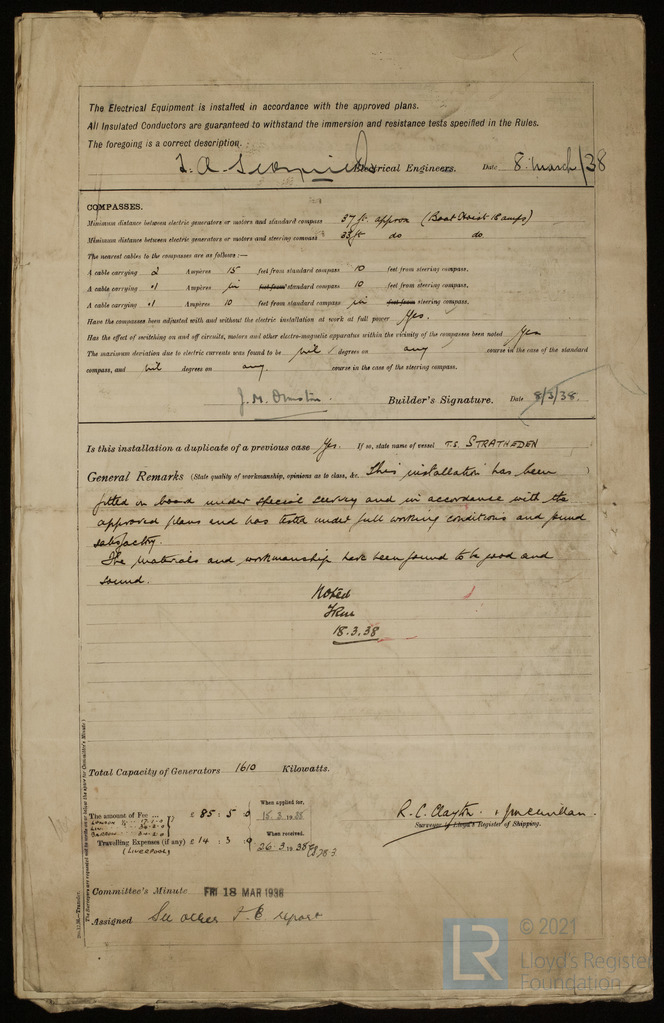 The Electrical Equipment is installed in accordance with the approved plans.
All Insulated Conductors are guaranteed to withstand the immersion and resistance tests specified in the Rules.
The foregoing is a correct description.
Electrical Engineers. Date 8. March/38
COMPASSES.
Minimum distance between electric generators or motors and standard compass 37 ft. approx (Boat Hoist 18 amps)
Minimum distance between electric generators or motors and steering compass 33 ft do do.
The nearest cables to the compasses are as follows:—
A cable carrying 2 Ampères 15 feet from standard compass 10 feet from steering compass.
A cable carrying .1 Ampères in feet from standard compass 10 feet from steering compass.
A cable carrying .1 Ampères 10 feet from standard compass in feet from steering compass.
Have the compasses been adjusted with and without the electric installation at work at full power Yes.
Has the effect of switching on and off circuits, motors and other electro-magnetic apparatus within the vicinity of the compasses been noted Yes
The maximum deviation due to electric currents was found to be nil degrees on any course in the case of the standard
compass, and nil degrees on any course in the case of the steering compass.
Builder's Signature. Date 8/3/38.
Is this installation a duplicate of a previous case Yes. If so, state name of vessel T.S. STRATHEDEN
General Remarks (State quality of workmanship, opinions as to class, &c. This installation has been
fitted on board under special survey and in accordance with the
approved plans and has tested under full working conditions and found
satisfactory.
The materials and workmanship have been found to be good and
sound.
Noted
18.3.38
Total Capacity of Generators 1610 Kilowatts.
The amount of Fee ... £ 85 : 5 : 0
When applied for,
18.3.1938
Travelling Expenses (if any) £ 14 : 3 : 9
(LIVERPOOL)
When received.
26.3.1938
R. C. Clayton. + J. McMillan.
Surveyor to Lloyd's Register of Shipping.
Committee's Minute FRI 18 MAR 1938
Assigned See other F.E. report
© 2021
LR
Lloyd's Register
Foundation